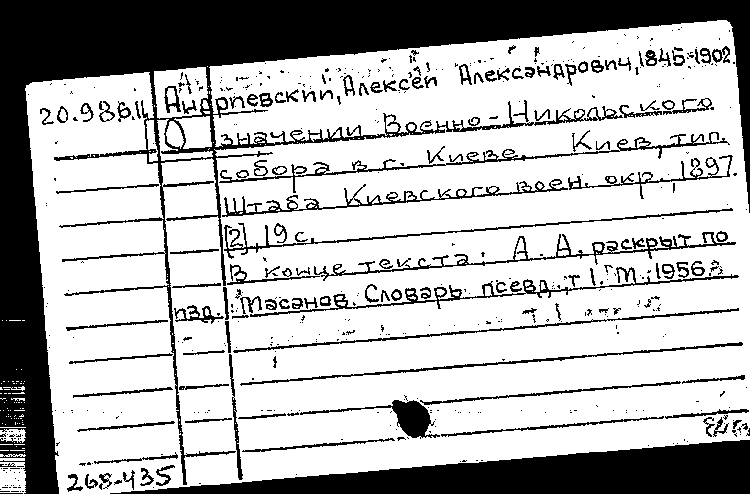 20.98611 Андриевский, Алексей Александрович, 1845-1902.
О значении Военно-Никольского
собора в г. Киеве. Киев, тип.
Штаба Киевского воен. окр., 1897.
[2], 19 с.
В конце текста: А. А., раскрыт по
изд.: Масанов. Словарь псевд., т I. М., 1956.
т. I
268-435